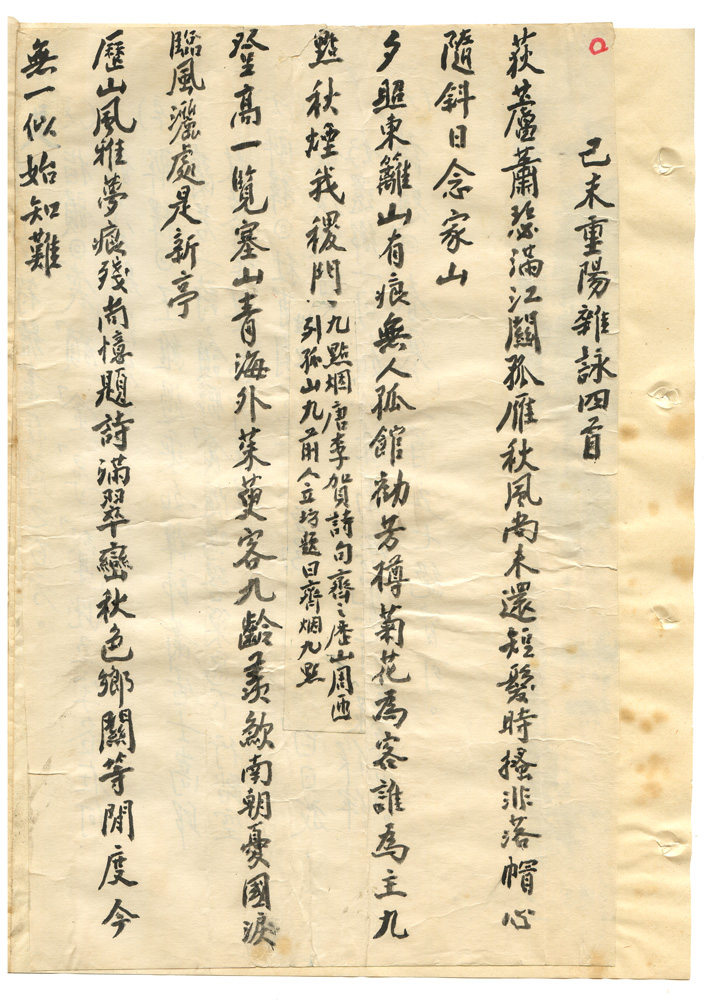 己未重陽雜詠四首
荻蘆蕭瑟滿江關孤雁秋風尚未還短髮時搔非落帽心
隨斜日念家山
夕照東籬山有痕無人孤館勸芳樽菊花為客誰為主九
點秋煙我稷門
九點烟唐李賀詩句齊之歷山周匝
引孤山九前人立坊題曰齊烟九點
登高一覽塞山青海外茱萸客九齡羨歔南朝憂國淚
臨風灑處是新亭
歷山風雅夢痕殘尚憶題詩滿翠巒秋色鄉關等閒度今
無一似始知難